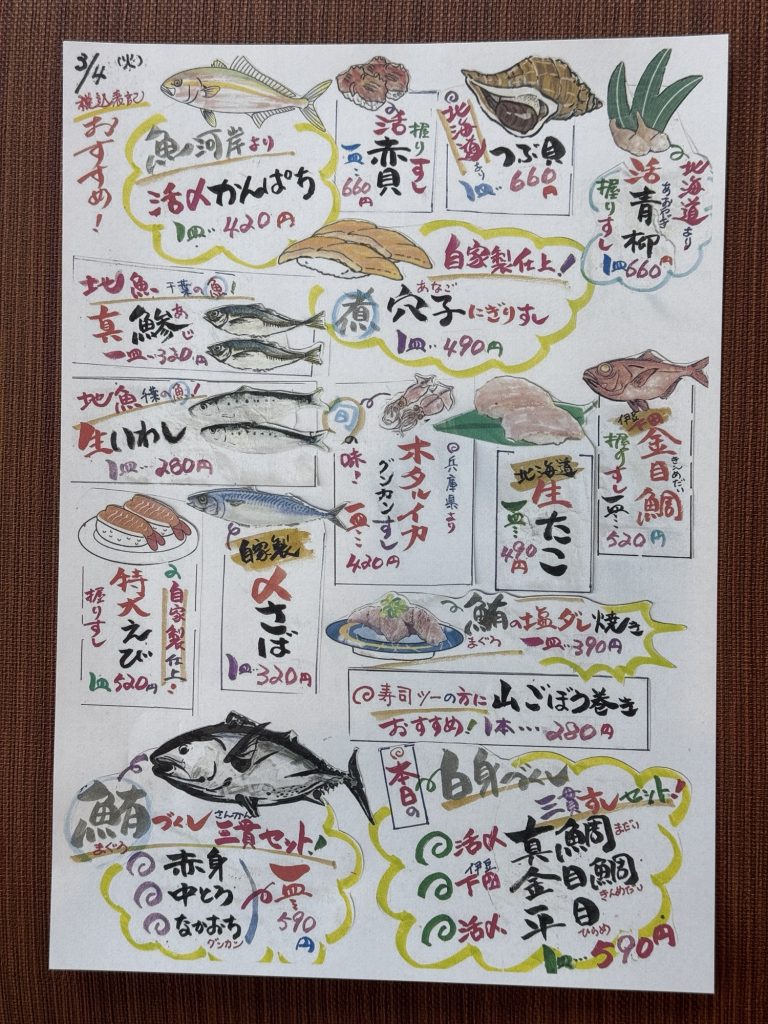 3/4 (火)
税込表記
おすすめ!
魚河岸より
活〆かんぱち
1皿… 420円
握りすし
活赤貝
一皿… 660円
北海道より
つぶ貝
1皿… 660円
北海道より
活青柳
あおやぎ
握りすし
1皿 660円
自家製仕上!
煮穴子にぎりすし
あなご
1皿… 490円
地魚、千葉の魚!
真鯵
あじ
一皿… 320円
地魚 千葉の魚!
生いわし
1皿… 280円
旬の味!
兵庫県より
ホタルイカ
グンカンすし
一皿… 420円
北海道
生たこ
一皿… 490円
伊豆下田
金目鯛
きんめだい
握りすし
一皿… 520円
自家製仕上!
特大えび
握りすし
1皿 520円
自家製
〆さば
1皿… 320円
鮪の塩ダレ焼き
まぐろ
一皿… 390円
寿司ツーの方に 山ごぼう巻き
おすすめ! 1本… 280円
鮪づくし 三貫セット!
まぐろ
さんかん
赤身
中とろ
なかおち
グンカン
一皿… 590円
本日の
白身づくし
三貫すしセット!
活〆 真鯛
まだい
伊豆下田 金目鯛
きんめだい
活〆 平目
ひらめ
1皿… 590円